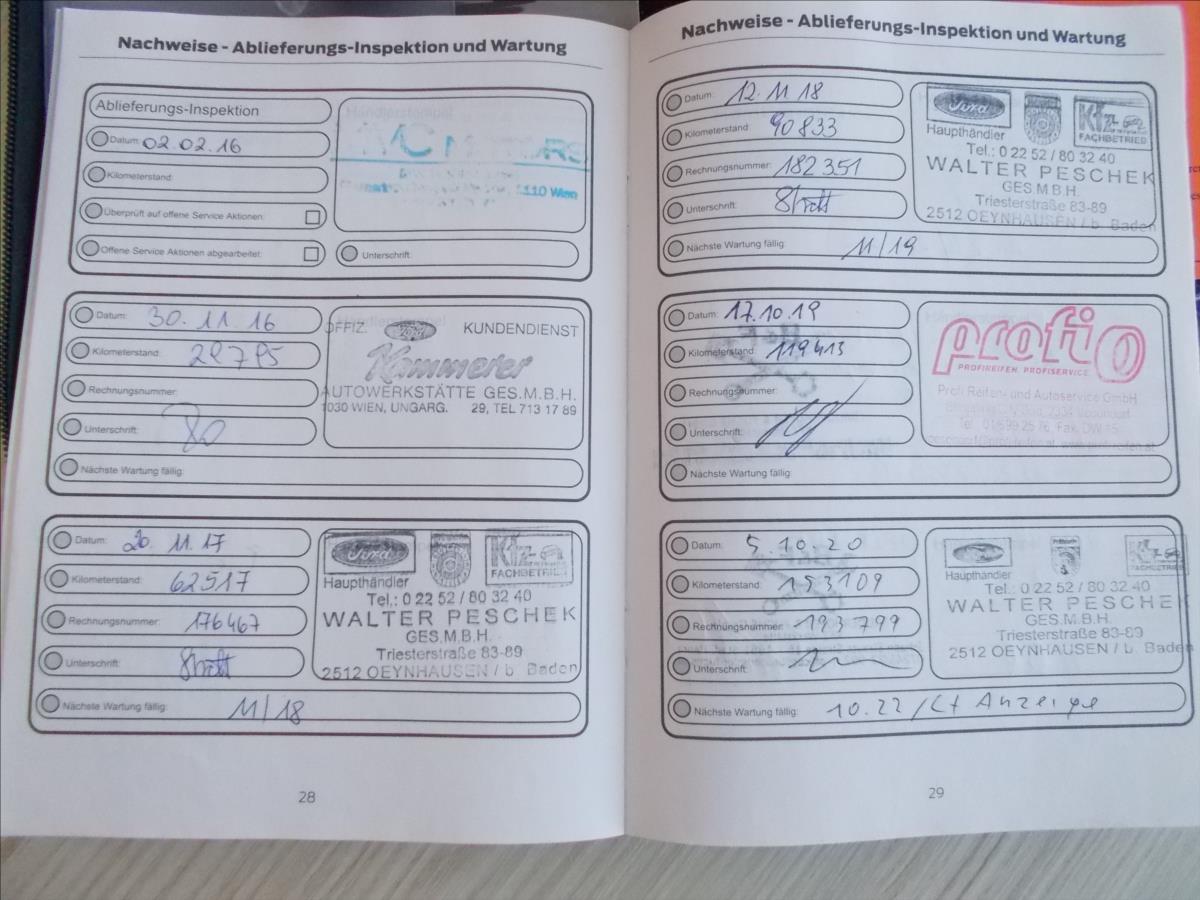 Nachweise - Ablieferungs-Inspektion und Wartung
Ablieferungs-Inspektion
Datum: 02.02.16
Kilometerstand:
Überprüft auf offene Service Aktionen:
Offene Service Aktionen abgearbeitet:
1110 Wien
Unterschrift:
Datum: 30.11.16
Kilometerstand:
Rechnungsnummer:
Unterschrift:
Nächste Wartung fällig:
OFFIZ. Ford KUNDENDIENST
Kammerer
AUTOWERKSTÄTTE GES.M.B.H.
1030 WIEN, UNGARG. 29, TEL 713 17 89
Datum: 20. 11.17
Kilometerstand: 62517
Rechnungsnummer: 176467
Unterschrift:
Nächste Wartung fällig: 11/18
Ford
Kfz
Haupthändler
FACHBETRIEB
Tel.: 0 22 52 / 80 32 40
WALTER PESCHEK
GES.M.B.H.
Triesterstraße 83-89
2512 OEYNHAUSEN / b. Baden
28
Nachweise - Ablieferungs-Inspektion und Wartung
Datum: 12.11.18
Kilometerstand: 90833
Rechnungsnummer: 182351
Unterschrift:
Nächste Wartung fällig: 11/19
Ford
Kfz
Haupthändler
FACHBETRIEB
Tel.: 0 22 52 / 80 32 40
WALTER PESCHEK
GES.M.B.H.
Triesterstraße 83-89
2512 OEYNHAUSEN / b. Baden
Datum: 17.10.19
Kilometerstand: 119413
Rechnungsnummer:
Unterschrift:
Nächste Wartung fällig:
profi
PROFIREIFEN. PROFISERVICE.
Profi Reifen- und Autoservice GmbH
Tel. 01/699 25 76, Fax. DW 15
Datum: 5.10.20
Kilometerstand: 153109
Rechnungsnummer: 193799
Unterschrift:
Nächste Wartung fällig: 10.22 / Lt Anzeige
Haupthändler
FACHBETRIEB
Tel.: 0 22 52 / 80 32 40
WALTER PESCHEK
GES.M.B.H.
Triesterstraße 83-89
2512 OEYNHAUSEN / b. Baden
29